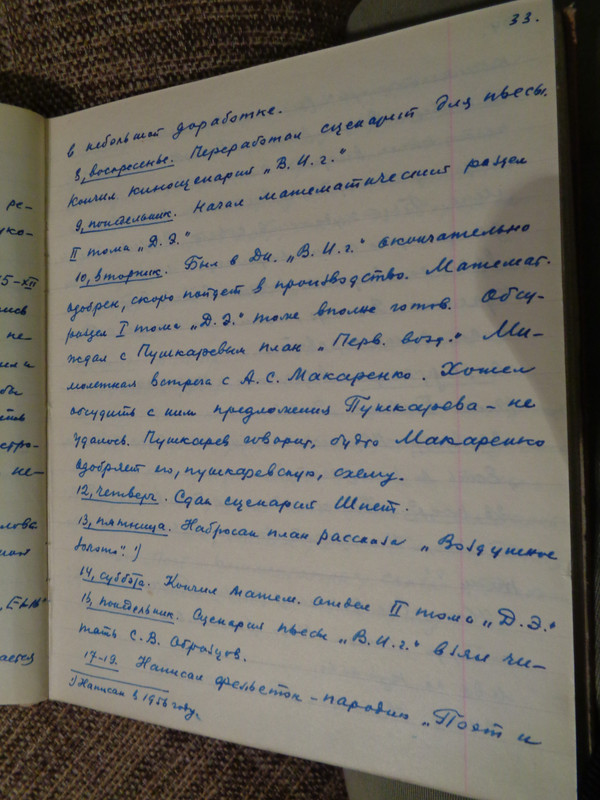 33.
в небольшой доработке.
8, воскресенье. Переработал сценарий для пьесы.
Кончил киносценарий „В. И. г."
9, понедельник. Начал математический раздел
II тома „Д. Э."
10, вторник. Был в Ди. „В. И. г." окончательно
одобрен, скоро пойдет в производство. Математ.
раздел I тома „Д. Э." тоже вполне готов. Обсу-
ждал с Пушкаревым план „Перв. возд." Ми-
молетная встреча с А. С. Макаренко. Хотел
обсудить с ним предложения Пушкарева – не
удалось. Пушкарев говорит, будто Макаренко
одобряет его, пушкаревскую, схему.
12, четверг. Сдал сценарий Шпет.
13, пятница. Набросал план рассказа „Воздушное
золото". 1)
14, суббота. Кончил матем. отдел II тома „Д. Э."
16, понедельник. Сценарий пьесы „В. И. г." взял чи-
тать С. В. Образцов.
17–19. Написал фельетон – пародию „Поэт и
1) Написан в 1956 году.
ре-
5-XII
не-
бы
стро-
не-